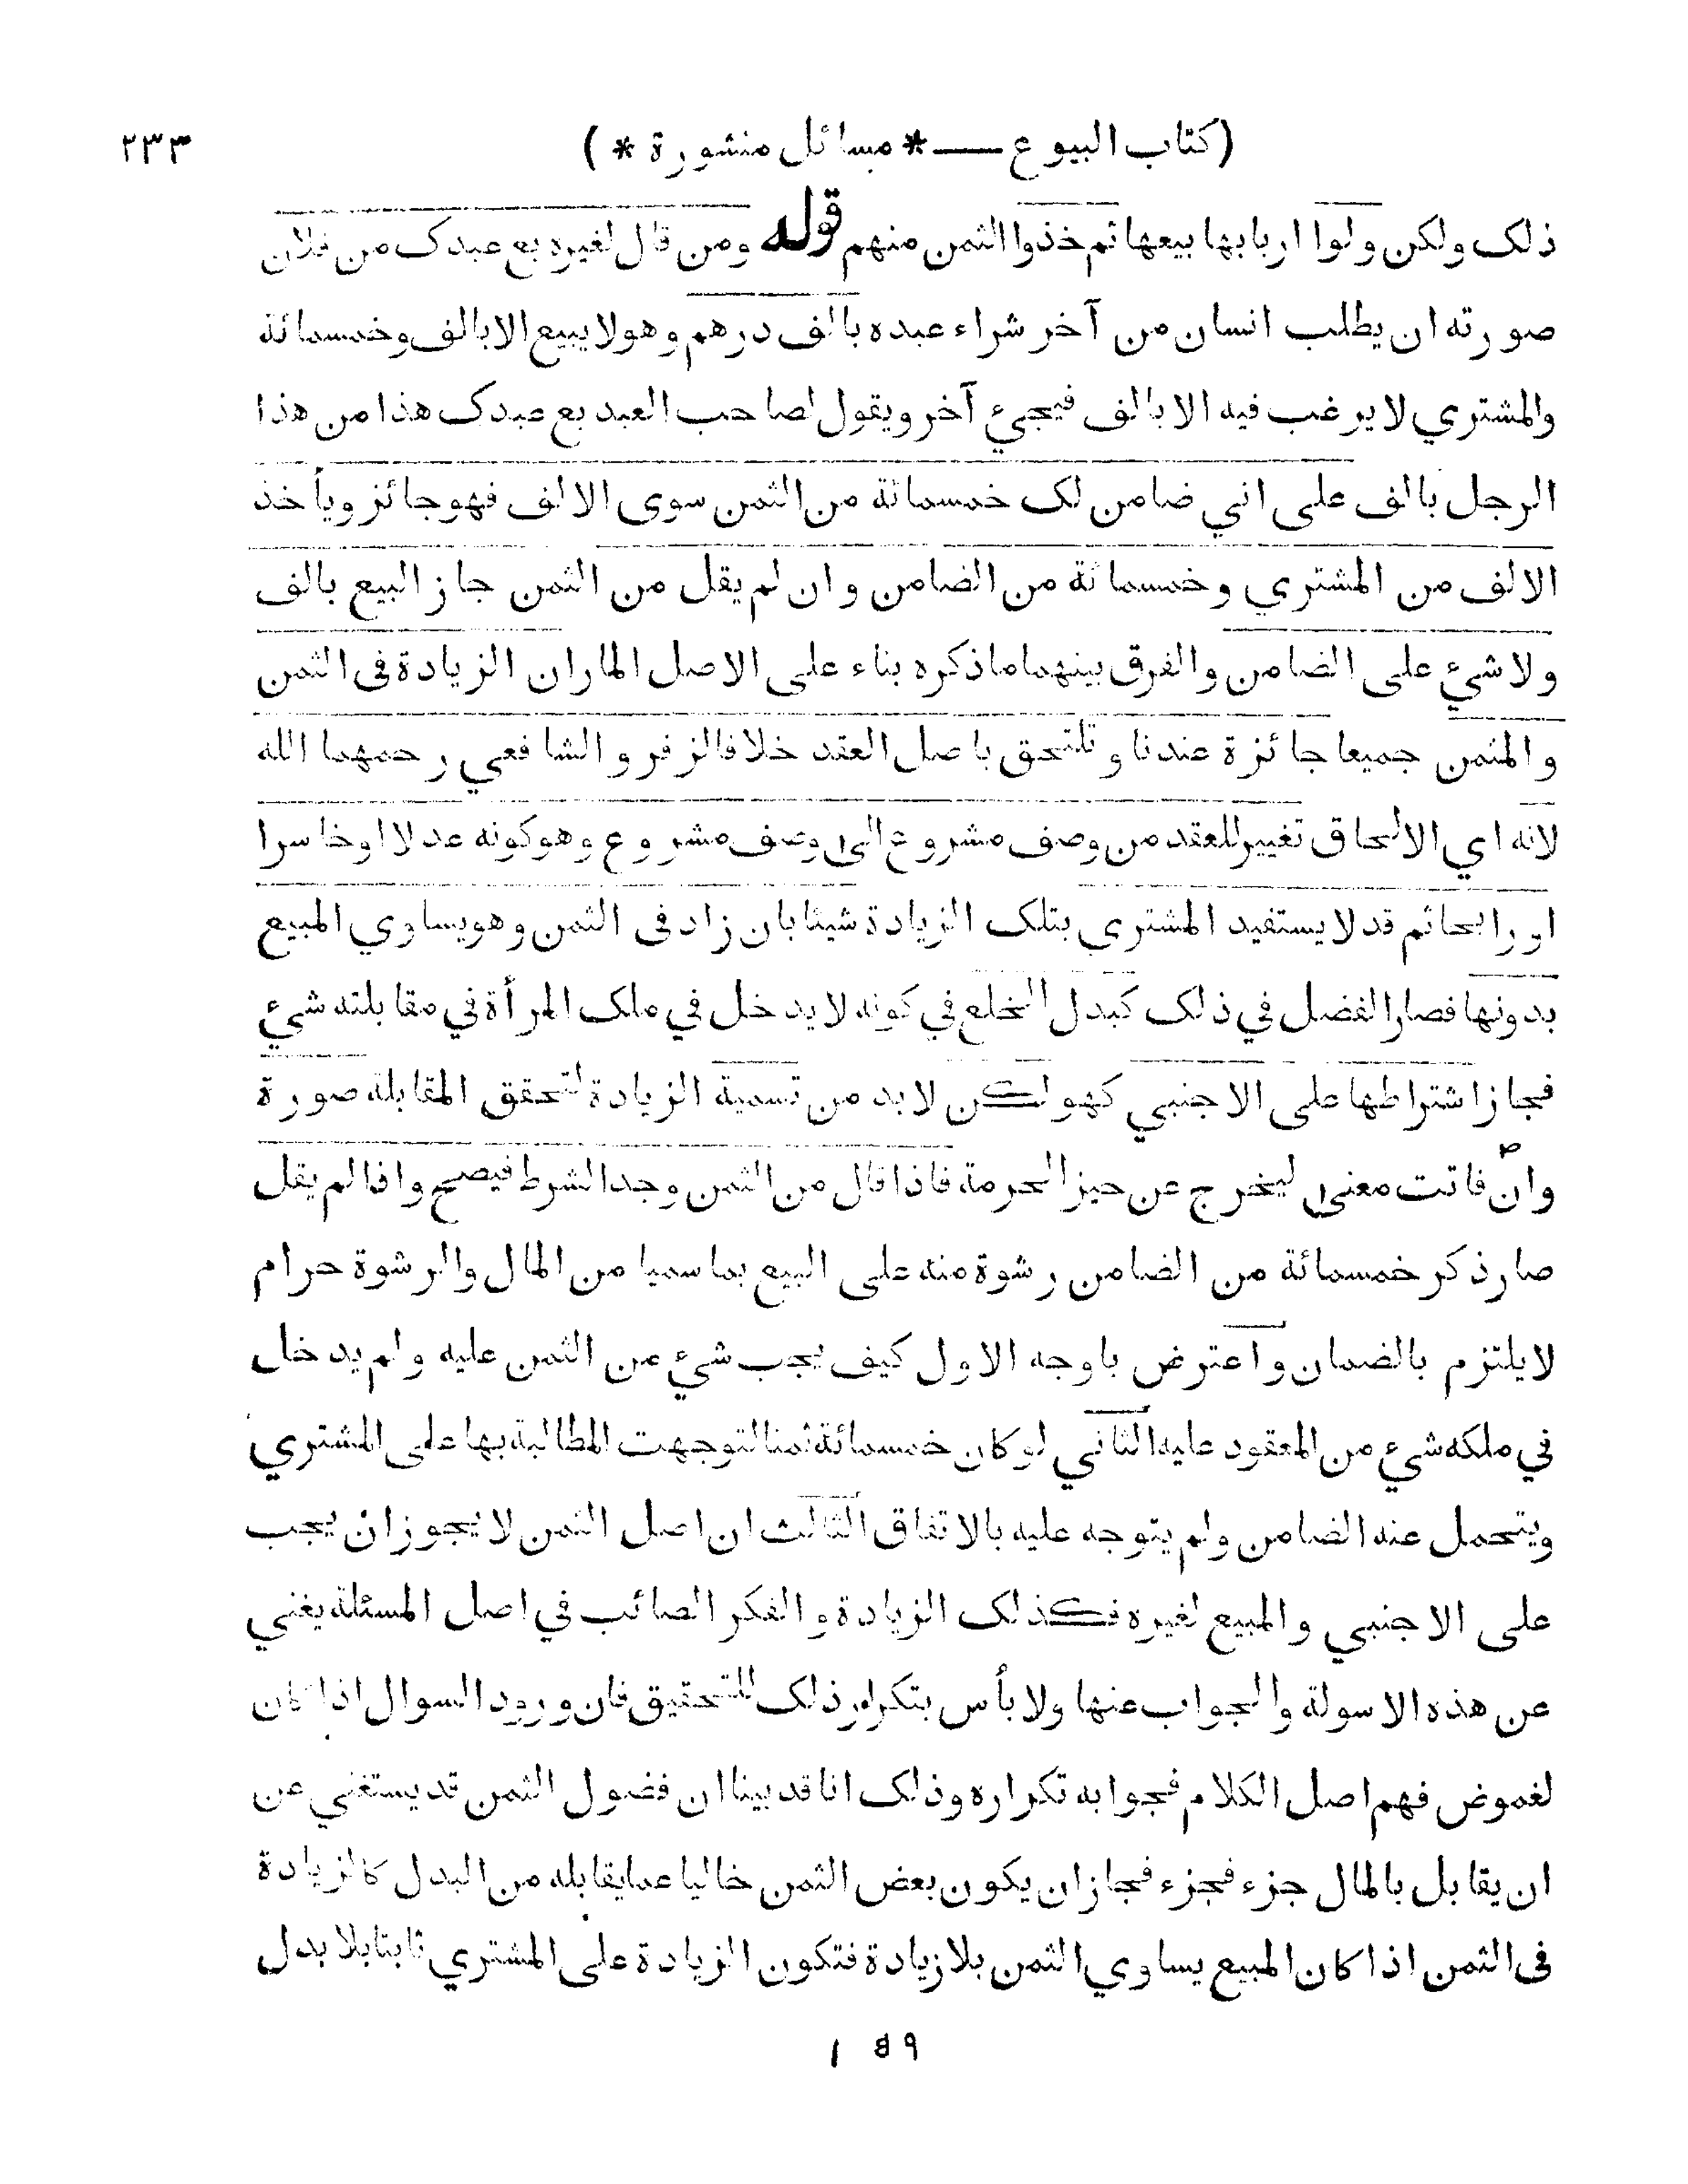 (كتاب البيوع — * مسائل منشورة *) ٢٣٣
ذلك ولكن ولوا اربابها بيعها ثم خذوا الثمن منهم قوله ومن قال لغيره بع عبدك من فلان
صورته ان يطلب انسان من آخر شراء عبده بالف درهم وهو لا يبيع الا بالف وخمسمائة
والمشتري لا يرغب فيه الا بالف فيجيء آخر ويقول لصاحب العبد بع عبدك هذا من هذا
الرجل بالف على اني ضامن لك خمسمائة من الثمن سوى الالف فهو جائز ويأخذ
الالف من المشتري وخمسمائة من الضامن وان لم يقل من الثمن جاز البيع بالف
ولا شيء على الضامن والفرق بينهما ما ذكره بناء على الاصل الماران الزيادة فى الثمن
والمثمن جميعا جائزة عندنا وتلتحق باصل العقد خلافا لزفر والشافعي رحمهما الله
لانه اي الالحاق تغيير للعقد من وصف مشروع الى وصف مشروع وهو كونه عدلا او خاسرا
او رابحا ثم قد لا يستفيد المشتري بتلك الزيادة شيئا بان زاد فى الثمن وهو يساوي المبيع
بدونها فصار الفضل في ذلك كبدل الخلع في كونه لا يدخل في ملك المرأة في مقابلته شيء
فجاز اشتراطها على الاجنبي كهو لكن لا بد من تسمية الزيادة لتحقق المقابلة صورة
وان فاتت معنى ليخرج عن حيز الحرمة فاذا قال من الثمن وجد الشرط فيصح واذا لم يقل
صار ذكر خمسمائة من الضامن رشوة منه على البيع بما سميا من المال والرشوة حرام
لا يلتزم بالضمان واعترض باوجه الاول كيف يجب شيء من الثمن عليه ولم يدخل
في ملكه شيء من المعقود عليه الثاني لو كان خمسمائة ثمنا لتوجهت المطالبة بها على المشتري
ويتحمل عنه الضامن ولم يتوجه عليه بالاتفاق الثالث ان اصل الثمن لا يجوز ان يجب
على الاجنبي والمبيع لغيره فكذلك الزيادة والفكر الصائب في اصل المسئلة يغني
عن هذه الاسولة والجواب عنها ولا بأس بتكرار ذلك للتحقيق فان ورود السوال اذا كان
لغموض فهم اصل الكلام فجوابه تكراره وذلك انا قد بينا ان فضول الثمن قد يستغني عن
ان يقابل بالمال جزء فجزء فجاز ان يكون بعض الثمن خاليا عما يقابله من البدل كالزيادة
فى الثمن اذا كان المبيع يساوي الثمن بلا زيادة فتكون الزيادة على المشتري ثابتا بلا بدل